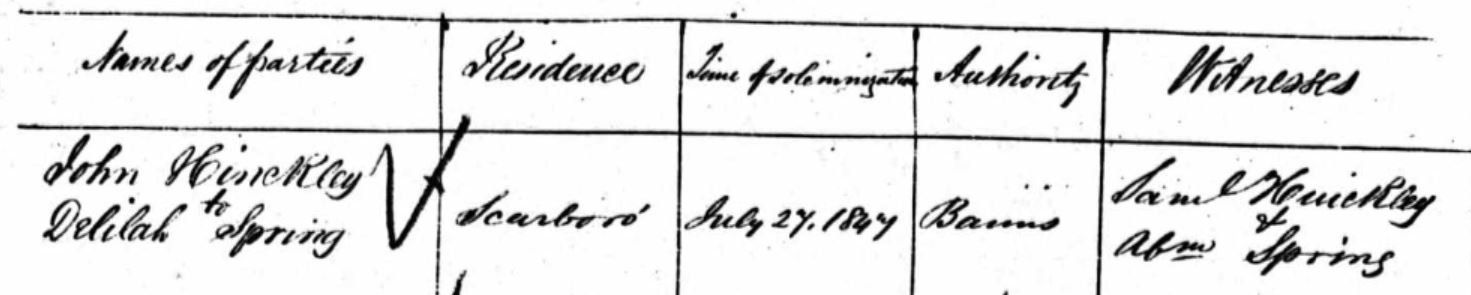 Names of parties Residence Time of solemnization Authority Witnesses
John Hinckley
to
Delilah Spring
Scarboro' July 27. 1847 Banns
Saml Hinckley
&
Abm Spring